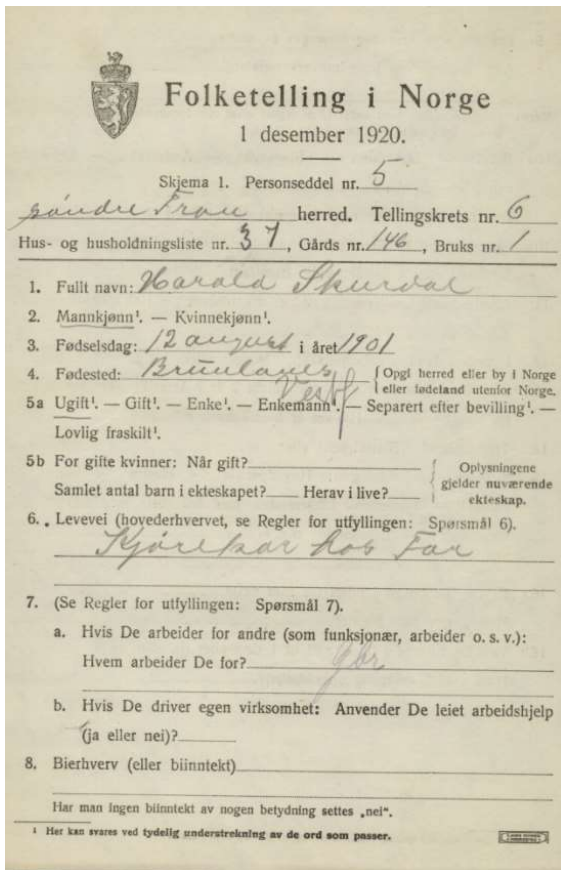 Folketelling i Norge
1 desember 1920.
Skjema 1. Personseddel nr. 5
søndre Fron herred. Tellingskrets nr. 6
Hus- og husholdningsliste nr. 37, Gårds nr. 146, Bruks nr. 1
1. Fullt navn: Harald Skurdal
2. Mannkjønn¹. — Kvinnekjønn¹.
3. Fødselsdag: 12 august i året 1901
4. Fødested: Brunlanes Vestf {Opgi herred eller by i Norge
eller fødeland utenfor Norge.
5a Ugift¹. — Gift¹. — Enke¹. — Enkemann¹. — Separert efter bevilling¹. —
Lovlig fraskilt¹.
5b For gifte kvinner: Når gift? { Oplysningene
Samlet antal barn i ekteskapet? Herav i live? gjelder nuværende
ekteskap.
6. Levevei (hovederhvervet, se Regler for utfyllingen: Spørsmål 6).
Kjørekar hos Far
7. (Se Regler for utfyllingen: Spørsmål 7).
a. Hvis De arbeider for andre (som funksjonær, arbeider o. s. v.):
Hvem arbeider De for? gbr
b. Hvis De driver egen virksomhet: Anvender De leiet arbeidshjelp
(ja eller nei)?
8. Bierhverv (eller biinntekt)
Har man ingen biinntekt av nogen betydning settes „nei".
¹ Her kan svares ved tydelig understrekning av de ord som passer.